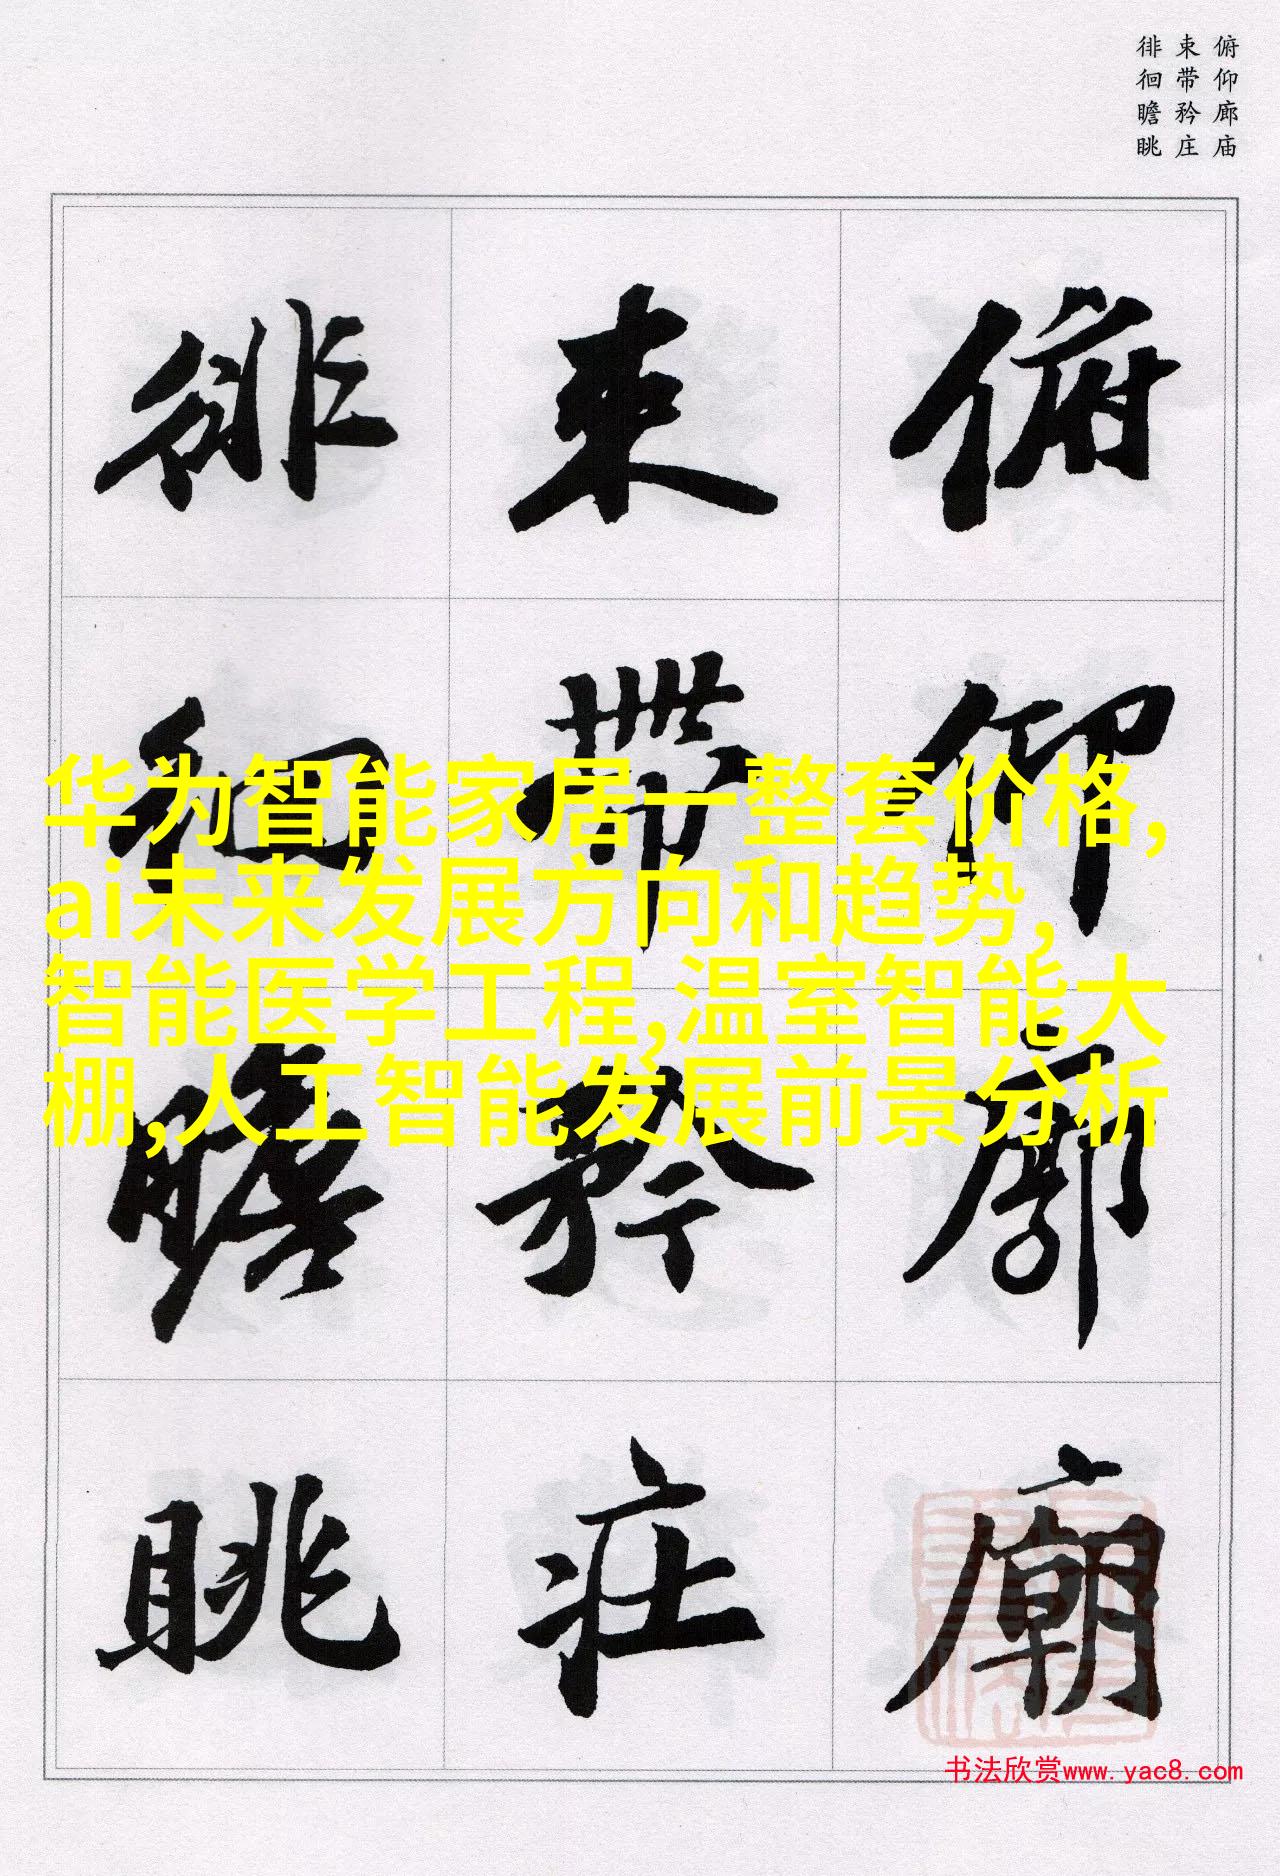 俯仰廊庙
束带矜庄
徘徊瞻眺
俯仰廊廟
束帶矜莊
徘徊瞻眺
华为智能家居一整套价格,
ai未来发展方向和趋势,
智能医学工程,温室智能大
棚,人工智能发展前景分析
书法欣赏www.yac8.com